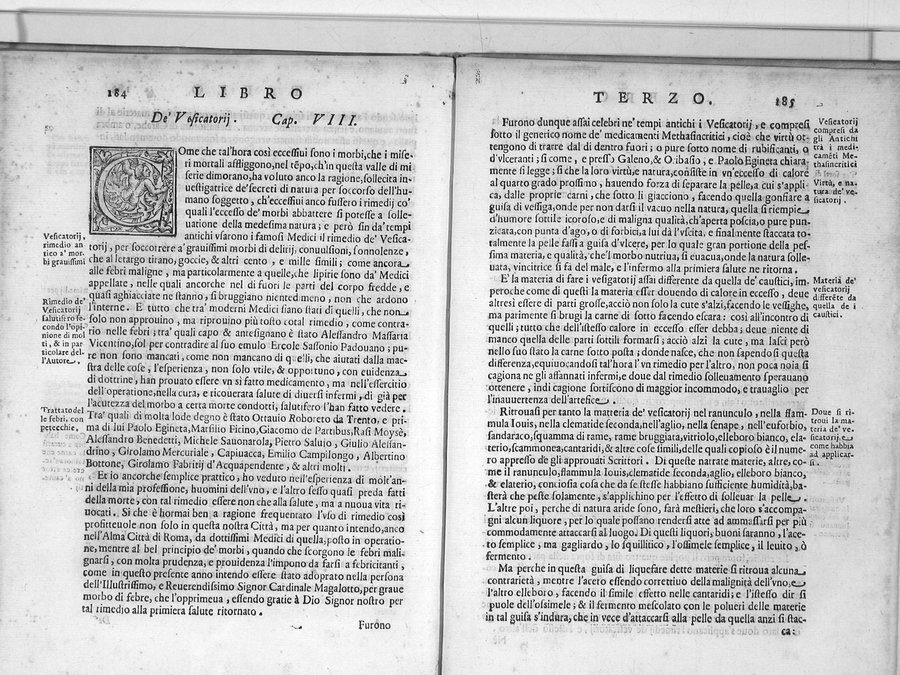 184 LIBRO
De' Vesicatorij. Cap. VIII.
COme che tal'hora così eccessiui sono i morbi, che i mise
ri mortali affliggono, nel tẽpo, ch'in questa valle di mi
serie dimorano, ha voluto anco la ragione, sollecita in
uestigatrice de' secreti di natura per soccorso dell'hu
mano soggetto, ch'eccessiui anco fussero i rimedij co'
quali l'eccesso de' morbi abbattere si potesse a solle-
uatione della medesima natura; e però sin da' tempi
antichi vsarono i famosi Medici il rimedio de' Vesica-
torij, per soccorrere a' grauissimi morbi di delirij, conuulsioni, sonnolenze,
che al letargo tirano, goccie, & altri cento, e mille simili; come ancora
alle febri maligne, ma particolarmente a quelle, che lipirie sono da' Medici
appellate, nelle quali ancorche nel di fuori le parti del corpo fredde, e
quasi aghiacciate ne stanno, si bruggiano niente di meno, non che ardono
l'interne. E tutto che tra' moderni Medici siano stati di quelli, che non
solo non approuino, ma riprouino più tosto cotal rimedio, come contra-
rio nelle febri; tra' quali capo & antesignano è stato Alessandro Massaria
Vicentino, sol per contradire al suo emulo Ercole Sassonio Padouano; pu-
re non sono mancati, come non mancano di quelli, che aiutati dalla mae-
stra delle cose, l'esperienza, non solo vtile, & opportuno, con euidenza
di dottrine, han prouato essere vn sì fatto medicamento, ma nell'esercitio
dell'operatione, nella cura, e ricouerata salute di diuersi infermi, di già per
l'acutezza del morbo a certa morte condotti, salutifero l'han fatto vedere.
Tra' quali di molta lode degno è stato Ottauio Roboreto da Trento, e pri-
ma di lui Paolo Egineta, Marsilio Ficino, Giacomo de Partibus, Rasi Moysè,
Alessandro Benedetti, Michele Sauonarola, Pietro Salujo, Giulio Alessan-
drino, Girolamo Mercuriale, Capiuacca, Emilio Campilongo, Albertino
Bottone, Girolamo Fabritij d'Acquapendente, & altri molti.
Et io ancorche semplice prattico, ho veduto nell'esperienza di molt'an-
ni della mia professione, huomini dell'vno, e l'altro sesso quasi preda fatti
della morte, con tal rimedio essere non che alla salute, ma a nuoua vita ri-
uocati. Sì che è hormai ben a ragione frequentato l'vso di rimedio così
profitteuole non solo in questa nostra Città, ma per quanto intendo, anco
nell'Alma Città di Roma, da dottissimi Medici di quella, posto in operatio-
ne, mentre al bel principio de' morbi, quando che scorgono le febri mali-
gnarsi, con molta prudenza, e prouidenza l'impono da farsi a febricitanti,
come in questo presente anno intendo essere stato adoprato nella persona
dell'Illustrissimo, e Reuerendissimo Signor Cardinale Magalotto, per graue
morbo di febre, che l'opprimeua, essendo gratie à Dio Signor nostro per
tal rimedio alla primiera salute ritornato.
Furono
Vesicatorij,
rimedio an
tico a' mor
bi grauissimi
Rimedio de'
Vesicatorij
salutifero se-
condo l'opi-
nione di mol
ti, & in par-
ticolare del-
l'Autore.
Trattato del
le febri, con
petecchie.
TERZO. 185
Furono dunque assai celebri ne' tempi antichi i Vesicatorij, e compresi
sotto il generico nome de' medicamenti Methasincritici, cioè che virtù ot-
tengono di trarre dal di dentro fuori; o pure sotto nome di rubificanti, o
d'vlceranti; sì come, e presso Galeno, & Oribasio, e Paolo Egineta chiara-
mente si legge; sì che la loro virtù, e natura, consiste in vn'eccesso di calore
al quarto grado prossimo, hauendo forza di separare la pelle, a cui s'appli-
ca, dalle proprie carni, che sotto li giacciono, facendo quella gonfiare a
guisa di vessiga, onde per non darsi il vacuo nella natura, quella si riempie
d'humore sottile icoroso, e di maligna qualità, ch'aperta poscia, o pure pun-
zicata, con punta d'ago, o di forbici, a lui dà l'vscita, e finalmente staccata to-
talmente la pelle fassi a guisa d'vlcere, per lo quale gran portione della pes-
sima materia, e qualità, che'l morbo nutriua, si euacua, onde la natura solle-
uata, vincitrice si fa del male, e l'infermo alla primiera salute ne ritorna.
E' la materia di fare i vesigatorij assai differente da quella de' caustici, im-
peroche come di questi la materia esser douendo di calore in eccesso, deue
altresì essere di parti grosse, acciò non solo la cute s'alzi, facendo le vessighe,
ma parimente si brugi la carne di sotto facendo escara: così all'incontro di
quelli; tutto che dell'istesso calore in eccesso esser debba; deue niente di
manco quella delle parti sottili formarsi; acciò alzi la cute, ma lasci però
nello suo stato la carne sotto posta; donde nasce, che non sapendosi questa
differenza, equiuocandosi tal'hora l'vn rimedio per l'altro, non poca noia si
cagiona ne gli affannati infermi, e doue dal rimedio solleuamento sperauano
ottenere, indi cagione sortiscono di maggior incommodo, e trauaglio per
l'inauuertenza dell'artefice.
Ritrouasi per tanto la materia de' vesicatorij nel ranunculo, nella flam-
mula Iouis, nella clematide seconda, nell'aglio, nella senape, nell'euforbio,
sandaraco, squamma di rame, rame bruggiata, vitriolo, elleboro bianco, ela-
terio, scammonea, cantaridi, & altre cose simili, delle quali copioso è il nume-
ro appresso de gli approuati Scrittori. Di queste narrate materie, altre, co-
me il ranunculo, flammula Iouis, clematide seconda, aglio, elleboro bianco,
& elaterio, conciosia cosa che da se stesse habbiano sufficiente humidità, ba-
sterà che peste solamente, s'applichino per l'effetto di solleuar la pelle.
L'altre poi, perche di natura aride sono, farà mestieri, che loro s'accompa-
gni alcun liquore, per lo quale possano rendersi atte ad ammassarsi per più
commodamente attaccarsi al luogo. Di questi liquori, buoni saranno, l'ace-
to semplice, ma gagliardo, lo squillitico, l'ossimele semplice, il leuito, ò
fermento.
Ma perche in questa guisa di liquefare dette materie si ritroua alcuna
contrarietà, mentre l'aceto essendo correttiuo della malignità dell'vno, e
l'altro elleboro, facendo il simile effetto nelle cantaridi; e l'istesso dir si
puole dell'ossimele; & il fermento mescolato con le polueri delle materie
in tal guisa s'indura, che in vece d'attaccarsi alla pelle da quella anzi si stac-
ca:
Vesicatorij
compresi da
gli Antichi
tra i medi-
camẽti Me-
thasincritici
Virtù, e na-
tura de' ve-
sicatorij.
Materia de'
vesicatorij
differẽte da
quella de i
caustici.
Doue si ri-
troui la ma-
teria de' ve-
sicatorij, e
come habbia
ad applicar-
si.